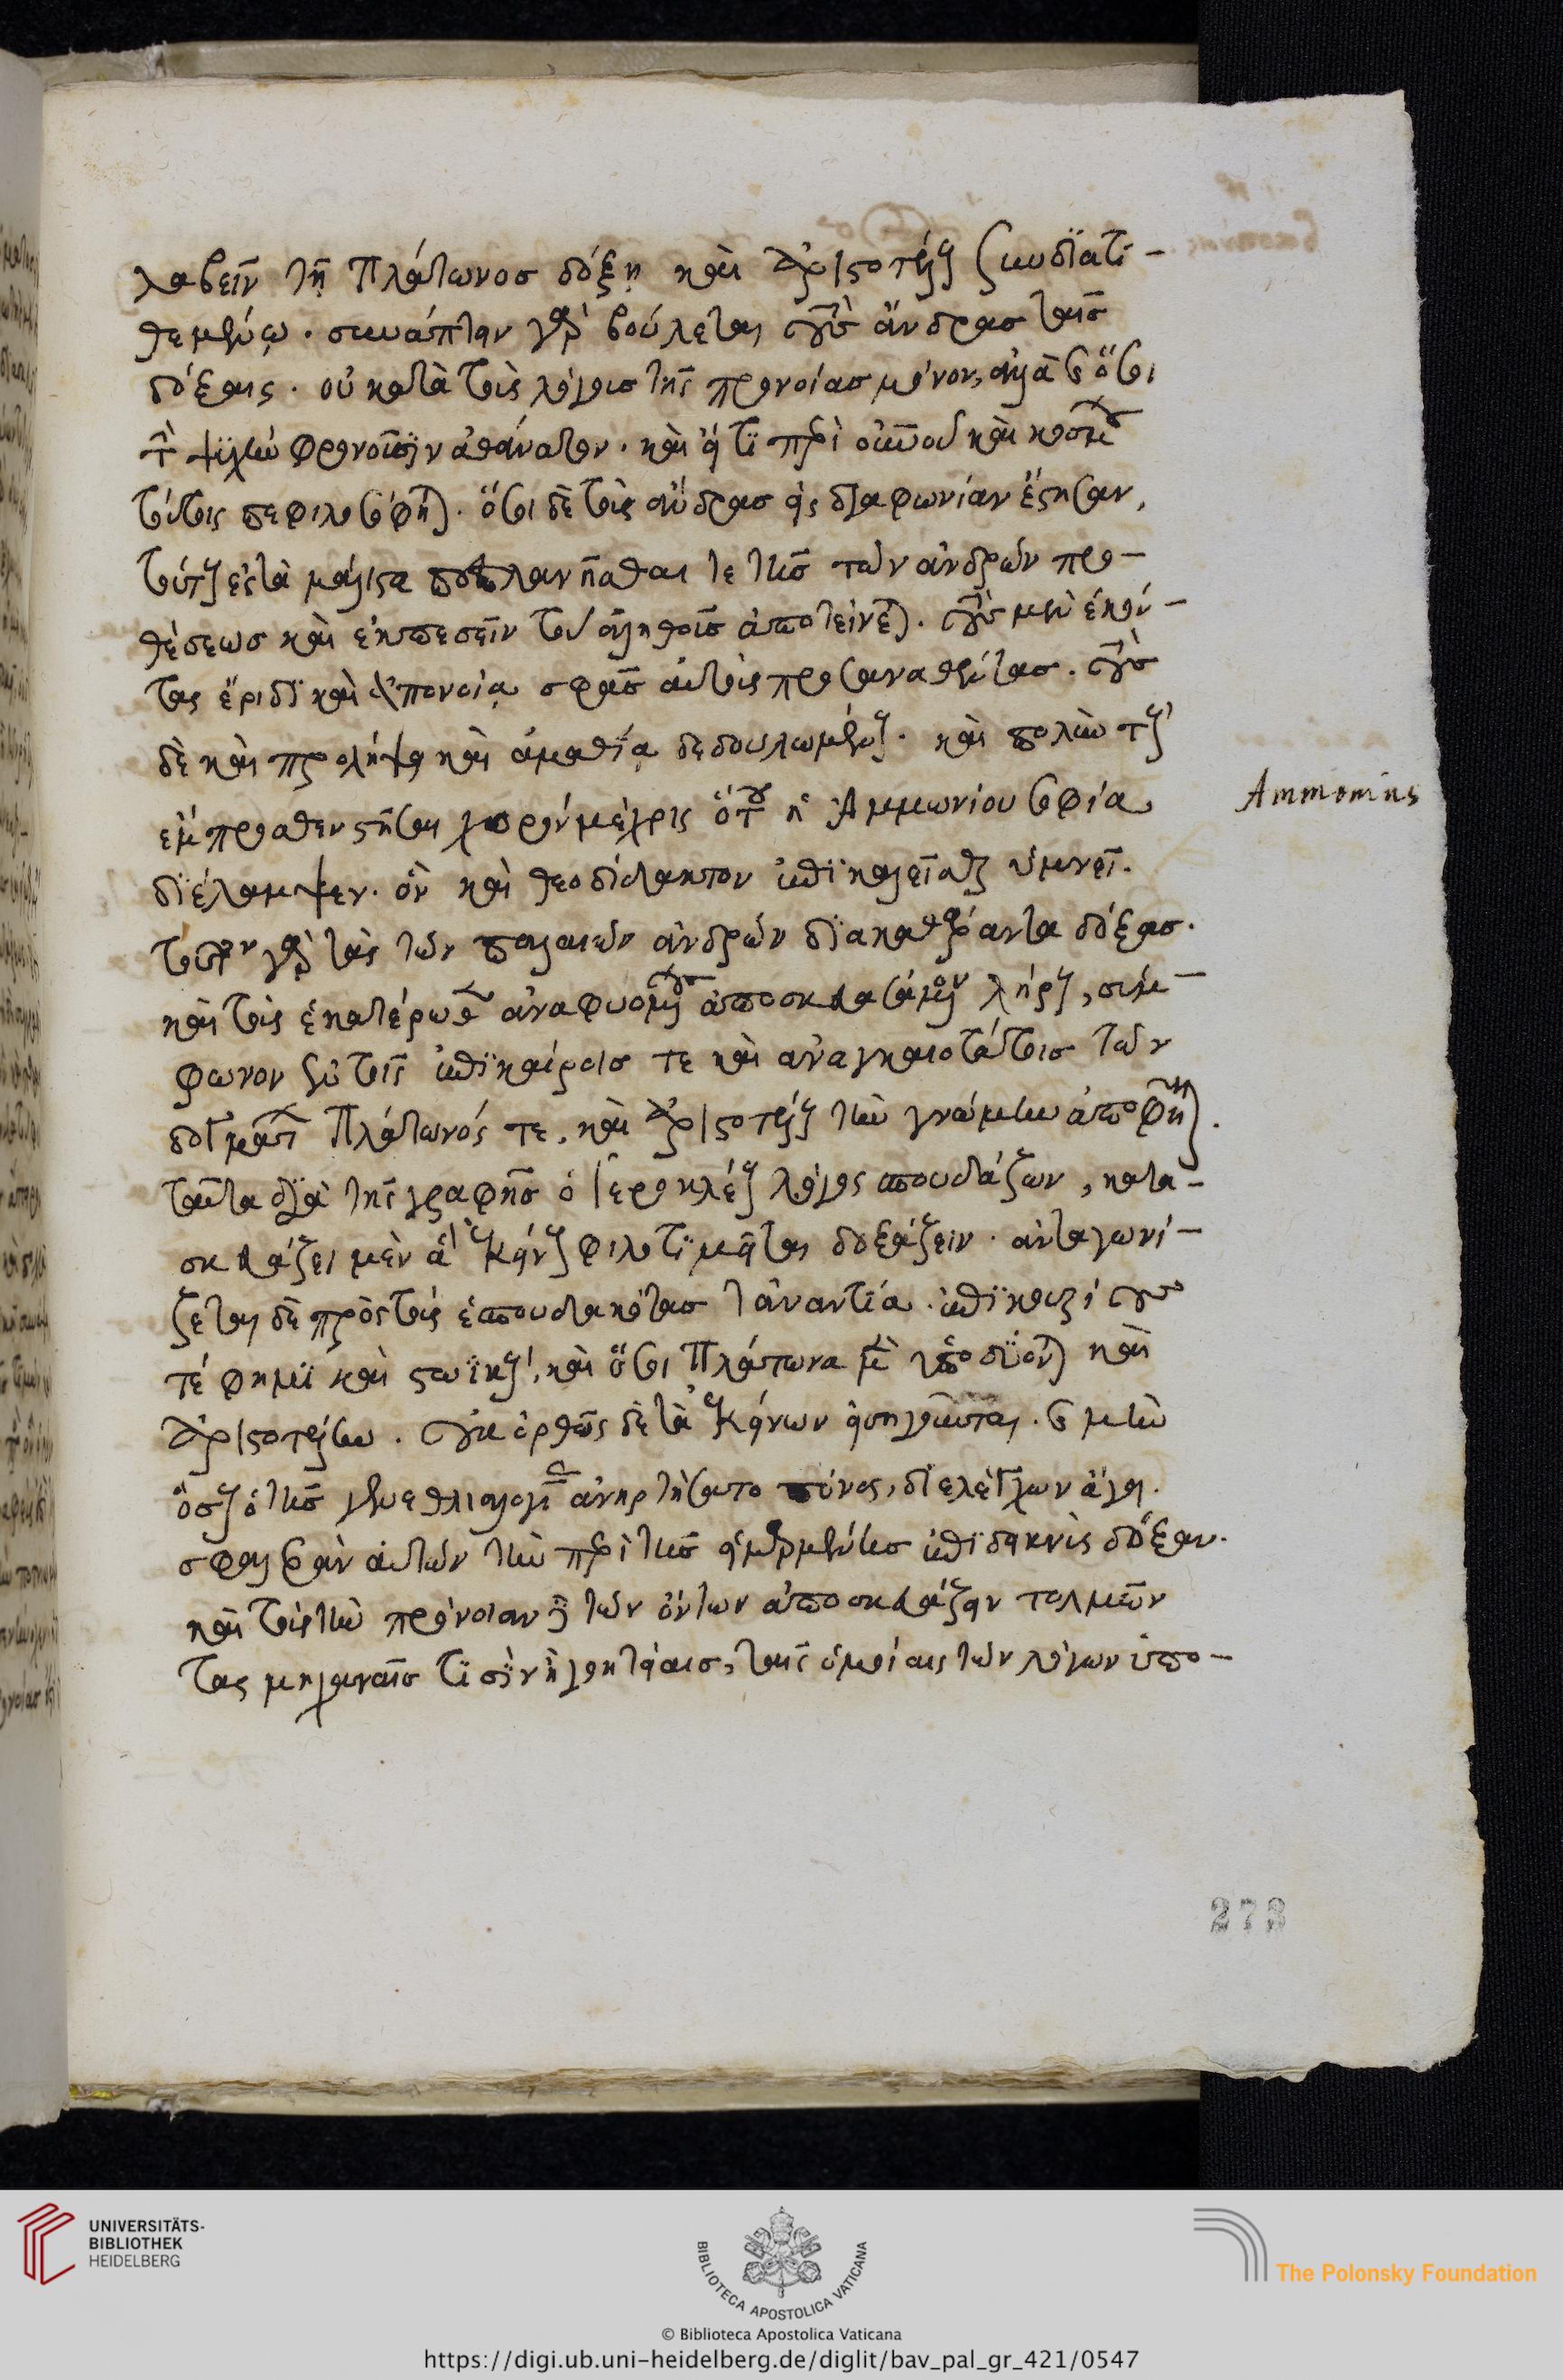 λαβεῖν τῇ Πλάτωνοσ δόξῃ καὶ Ἀριστοτέλους συνδϊατϊ-
θεμένῳ. συνάπτειν γὰρ βούλεται τοὺσ ἄνδρασ ταῖσ
δόξαις. οὐ κατὰ τοὺς λόγουσ τῆς προνοίασ μόνον, ἀλλὰ καὶ ὅσοι
τὴν ψυχὴν φρονοῦσϊν ἀθάνατον. καὶ εἴ τϊ περὶ οὐρανοῦ καὶ κόσμου
τούτοις πεφιλοσόφηται. ὅσοι δὲ τοὺς ἄνδρασ εἰς διαφωνίαν ἔστησαν,
τούτους ἐς τὰ μάλιστα πεπλανῆσθαι τε τῆσ τῶν ἀνδρῶν προ-
θέσεωσ καὶ ἐκπεσεῖν τοῦ ἀληθοῦσ ἀποτείνεται. τοὺσ μὲν ἑκόν-
τας ἔριδϊ καὶ ἀπονοίᾳ σφᾶσ αὐτοὺς προσαναθέντασ. τοὺσ
δὲ καὶ προλήψει καὶ ἀμαθίᾳ δεδουλωμένους. καὶ πολὺν τοὺς
ἔμπροσθεν στῆσαι χορόν μέχρις ὅτου ἡ Ἀμμωνίου σοφία
Ammonius
δϊέλαμψεν. ὃν καὶ θεοδίδακτον ἐπϊκαλεῖσθαι ὑμνεῖ.
τοῦτον γὰρ τὰς τῶν παλαιῶν ἀνδρῶν δϊακαθάραντα δόξασ.
καὶ τοὺς ἑκατέρωθεν ἀναφυομένους ἀποσκευασάμενον λήρους, σύμ-
φωνον ἐν τοῖς ἐπϊκαίροισ τε καὶ ἀναγκαιοτάτοισ τῶν
δογμάτων Πλάτωνός τε, καὶ Ἀριστοτέλους τὴν γνώμην ἀποφῆναι.
ταῦτα διὰ τῆς γραφῆσ ὁ Ἱεροκλέους λόγος σπουδάζων, κατα-
σκευάζει μὲν ἃ κἀκείνους φιλοτϊμεῖται δοξάζειν. ἀνταγωνί-
ζεται δὲ πρὸς τοὺς ἐσπουδακότασ τἀναντία. ἐπϊκουρείους
τέ φημϊ καὶ στωϊκούς, καὶ ὅσοι Πλάτωνα μὲν ὑποδύονται καὶ
Ἀριστοτέλην. οὐκ ὀρθῶς δὲ τὰ ἐκείνων εἰσηγοῦνται. καὶ μὴν
ὅσους ὁ τῆσ γενεθλιαλογίας ἀνηρτήσατο πόνος, διελέγχων ἄγει.
σφαλερὰν αὐτῶν τὴν περὶ τῆσ εἱμαρμένησ ἐπϊδεικνὺς δόξαν.
καὶ τοὺς τὴν πρόνοιαν ἐκ τῶν ὄντων ἀποσκευάζειν τολμῶν
τας μηχαναῖσ τϊσὶν ἢ γοητείαισ, ταῖς ὁμοίαις τῶν λόγων ὑπο-
273
UNIVERSITÄTS-
BIBLIOTHEK
HEIDELBERG
BIBLIOTECA APOSTOLICA VATICANA
The Polonsky Foundation
© Biblioteca Apostolica Vaticana
https://digi.ub.uni-heidelberg.de/diglit/bav_pal_gr_421/0547